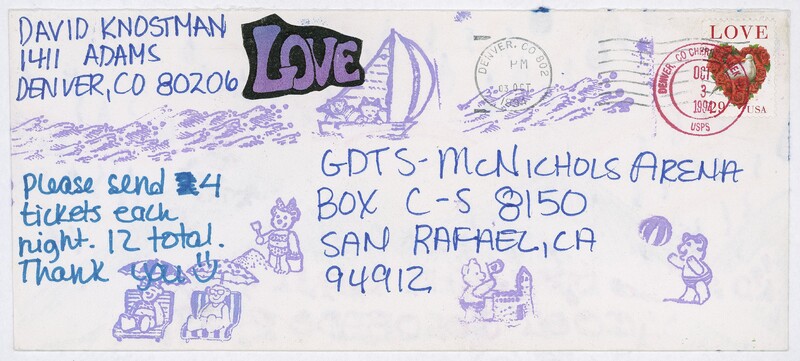 DAVID KNOSTMAN
1411 ADAMS
DENVER, CO 80206
LOVE
DENVER, CO 802
PM
03 OCT
1994
LOVE
29 USA
DENVER, CO CHERR
OCT
3
1994
USPS
GDTS-MCNICHOLS ARENA
BOX C-S 8150
SAN RAFAEL, CA
94912
Please send 4
tickets each
night. 12 total.
Thank you